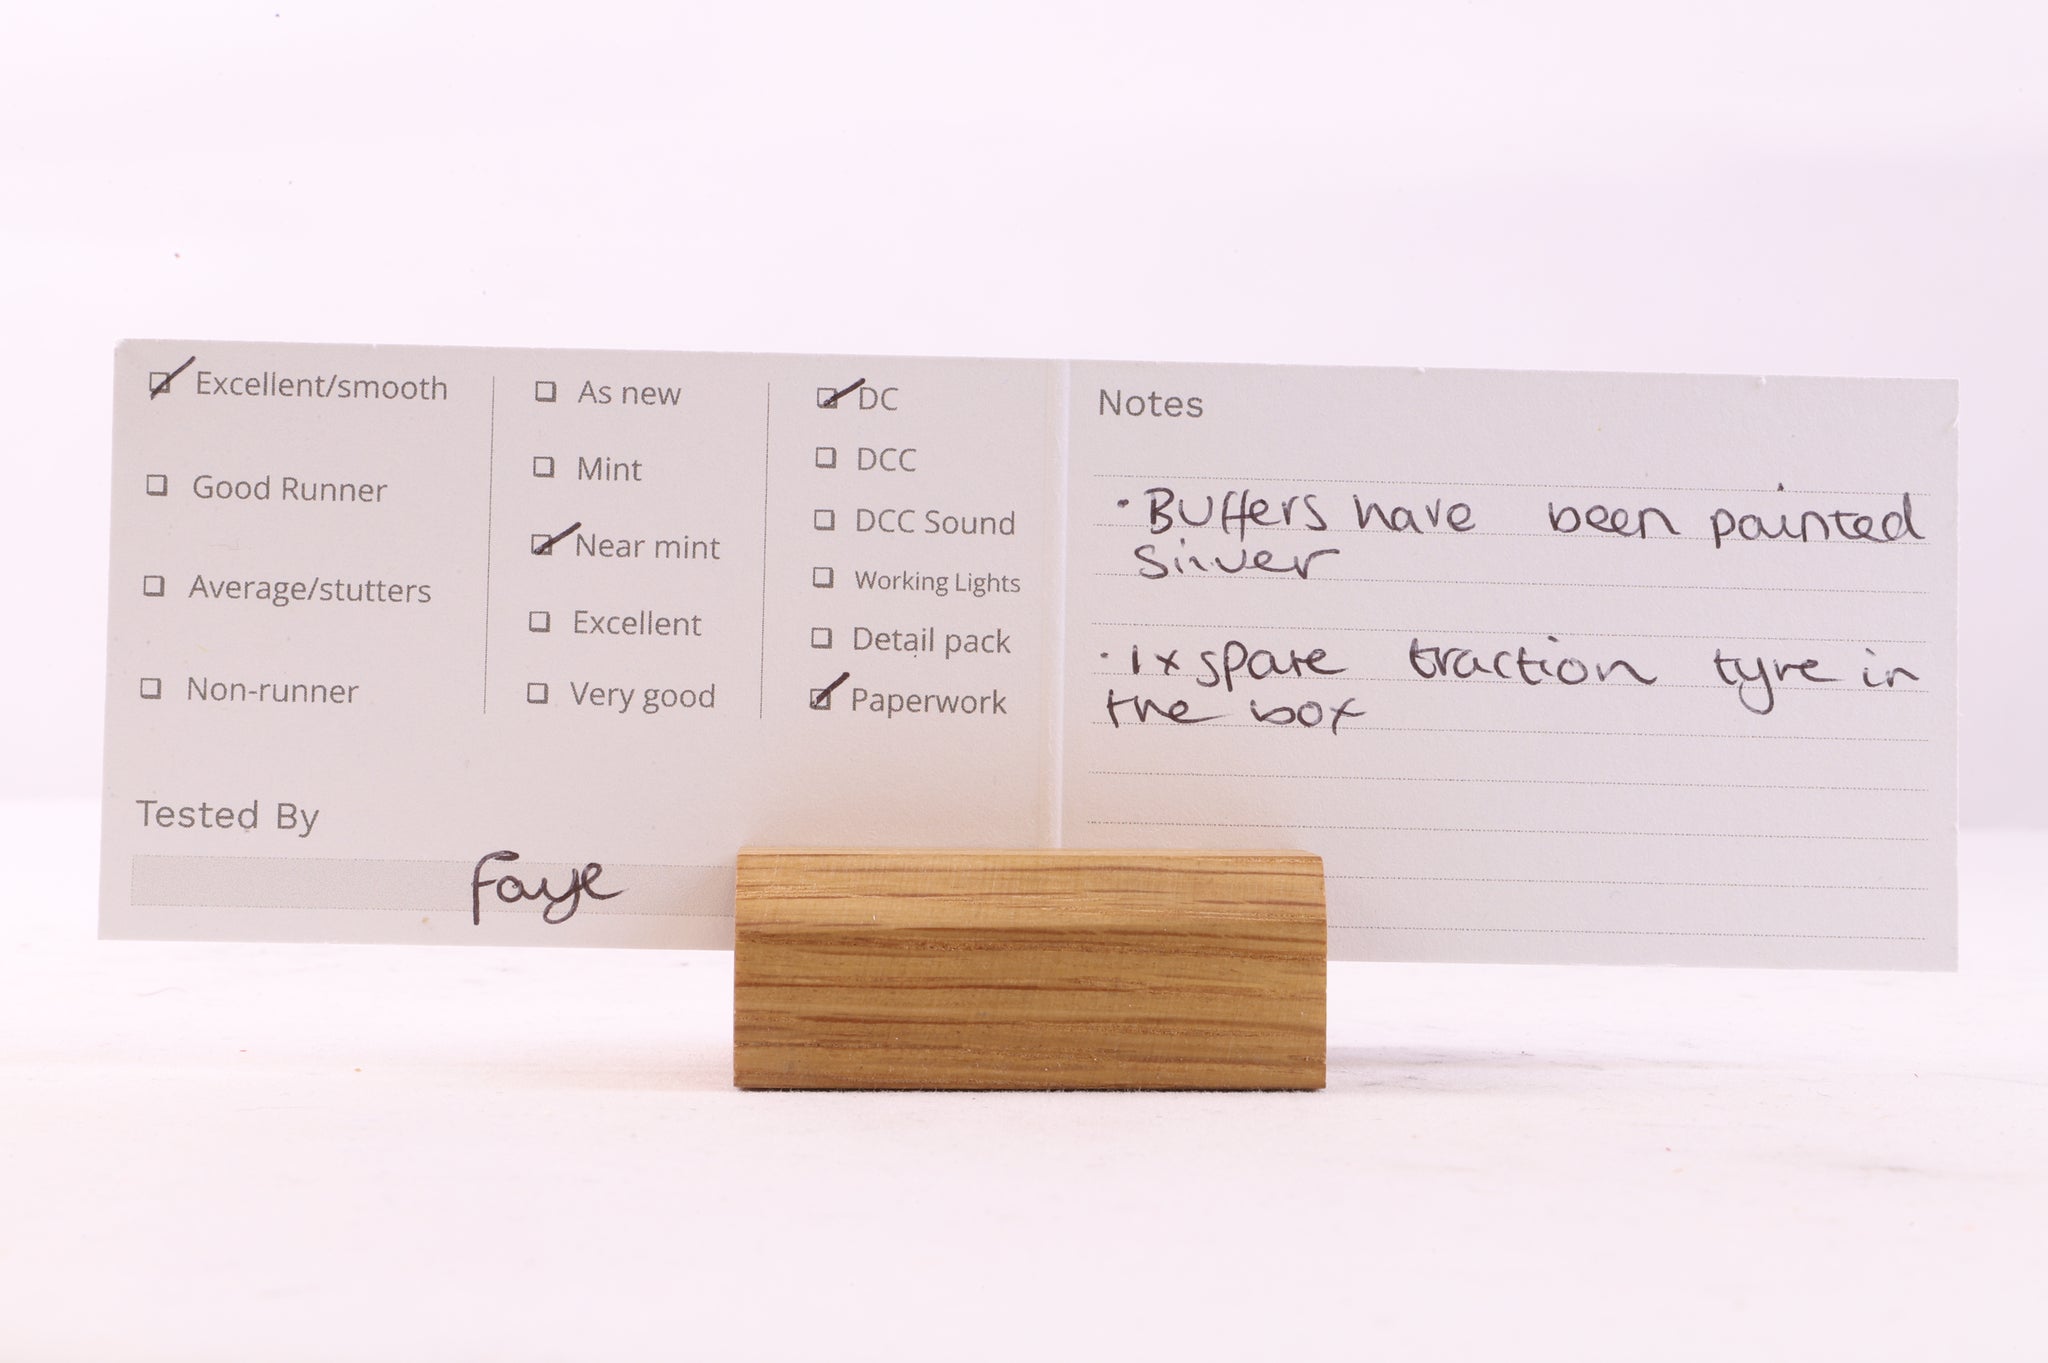 Excellent/smooth
Good Runner
Average/stutters
Non-runner
As new
Mint
Near mint
Excellent
Very good
DC
DCC
DCC Sound
Working Lights
Detail pack
Paperwork
Tested By
Faye
Notes
· Buffers have been painted
silver
· 1x spare traction tyre in
the box